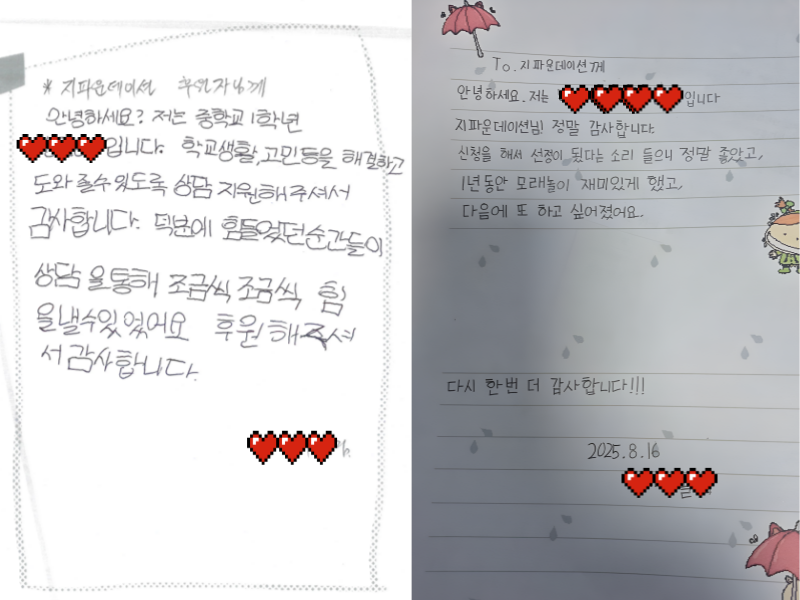 * 지파운데이션 후원자님께
안녕하세요? 저는 중학교 1학년
입니다. 학교생활, 고민등을 해결하고
도와 줄수 있도록 상담 지원해주셔서
감사합니다. 덕분에 힘들었던순간들이
상담 을통해 조금씩 조금씩 힘
을낼수있었어요 후원 해주셔
서 감사합니다.
To. 지파운데이션께
안녕하세요. 저는 입니다
지파운데이션님! 정말 감사합니다.
신청을 해서 선정이 됬다는 소리 들으니 정말 좋았고,
1년동안 모래놀이 재미있게 했고,
다음에 또 하고 싶어졌어요.
다시 한번 더 감사합니다!!!
2025.8.16